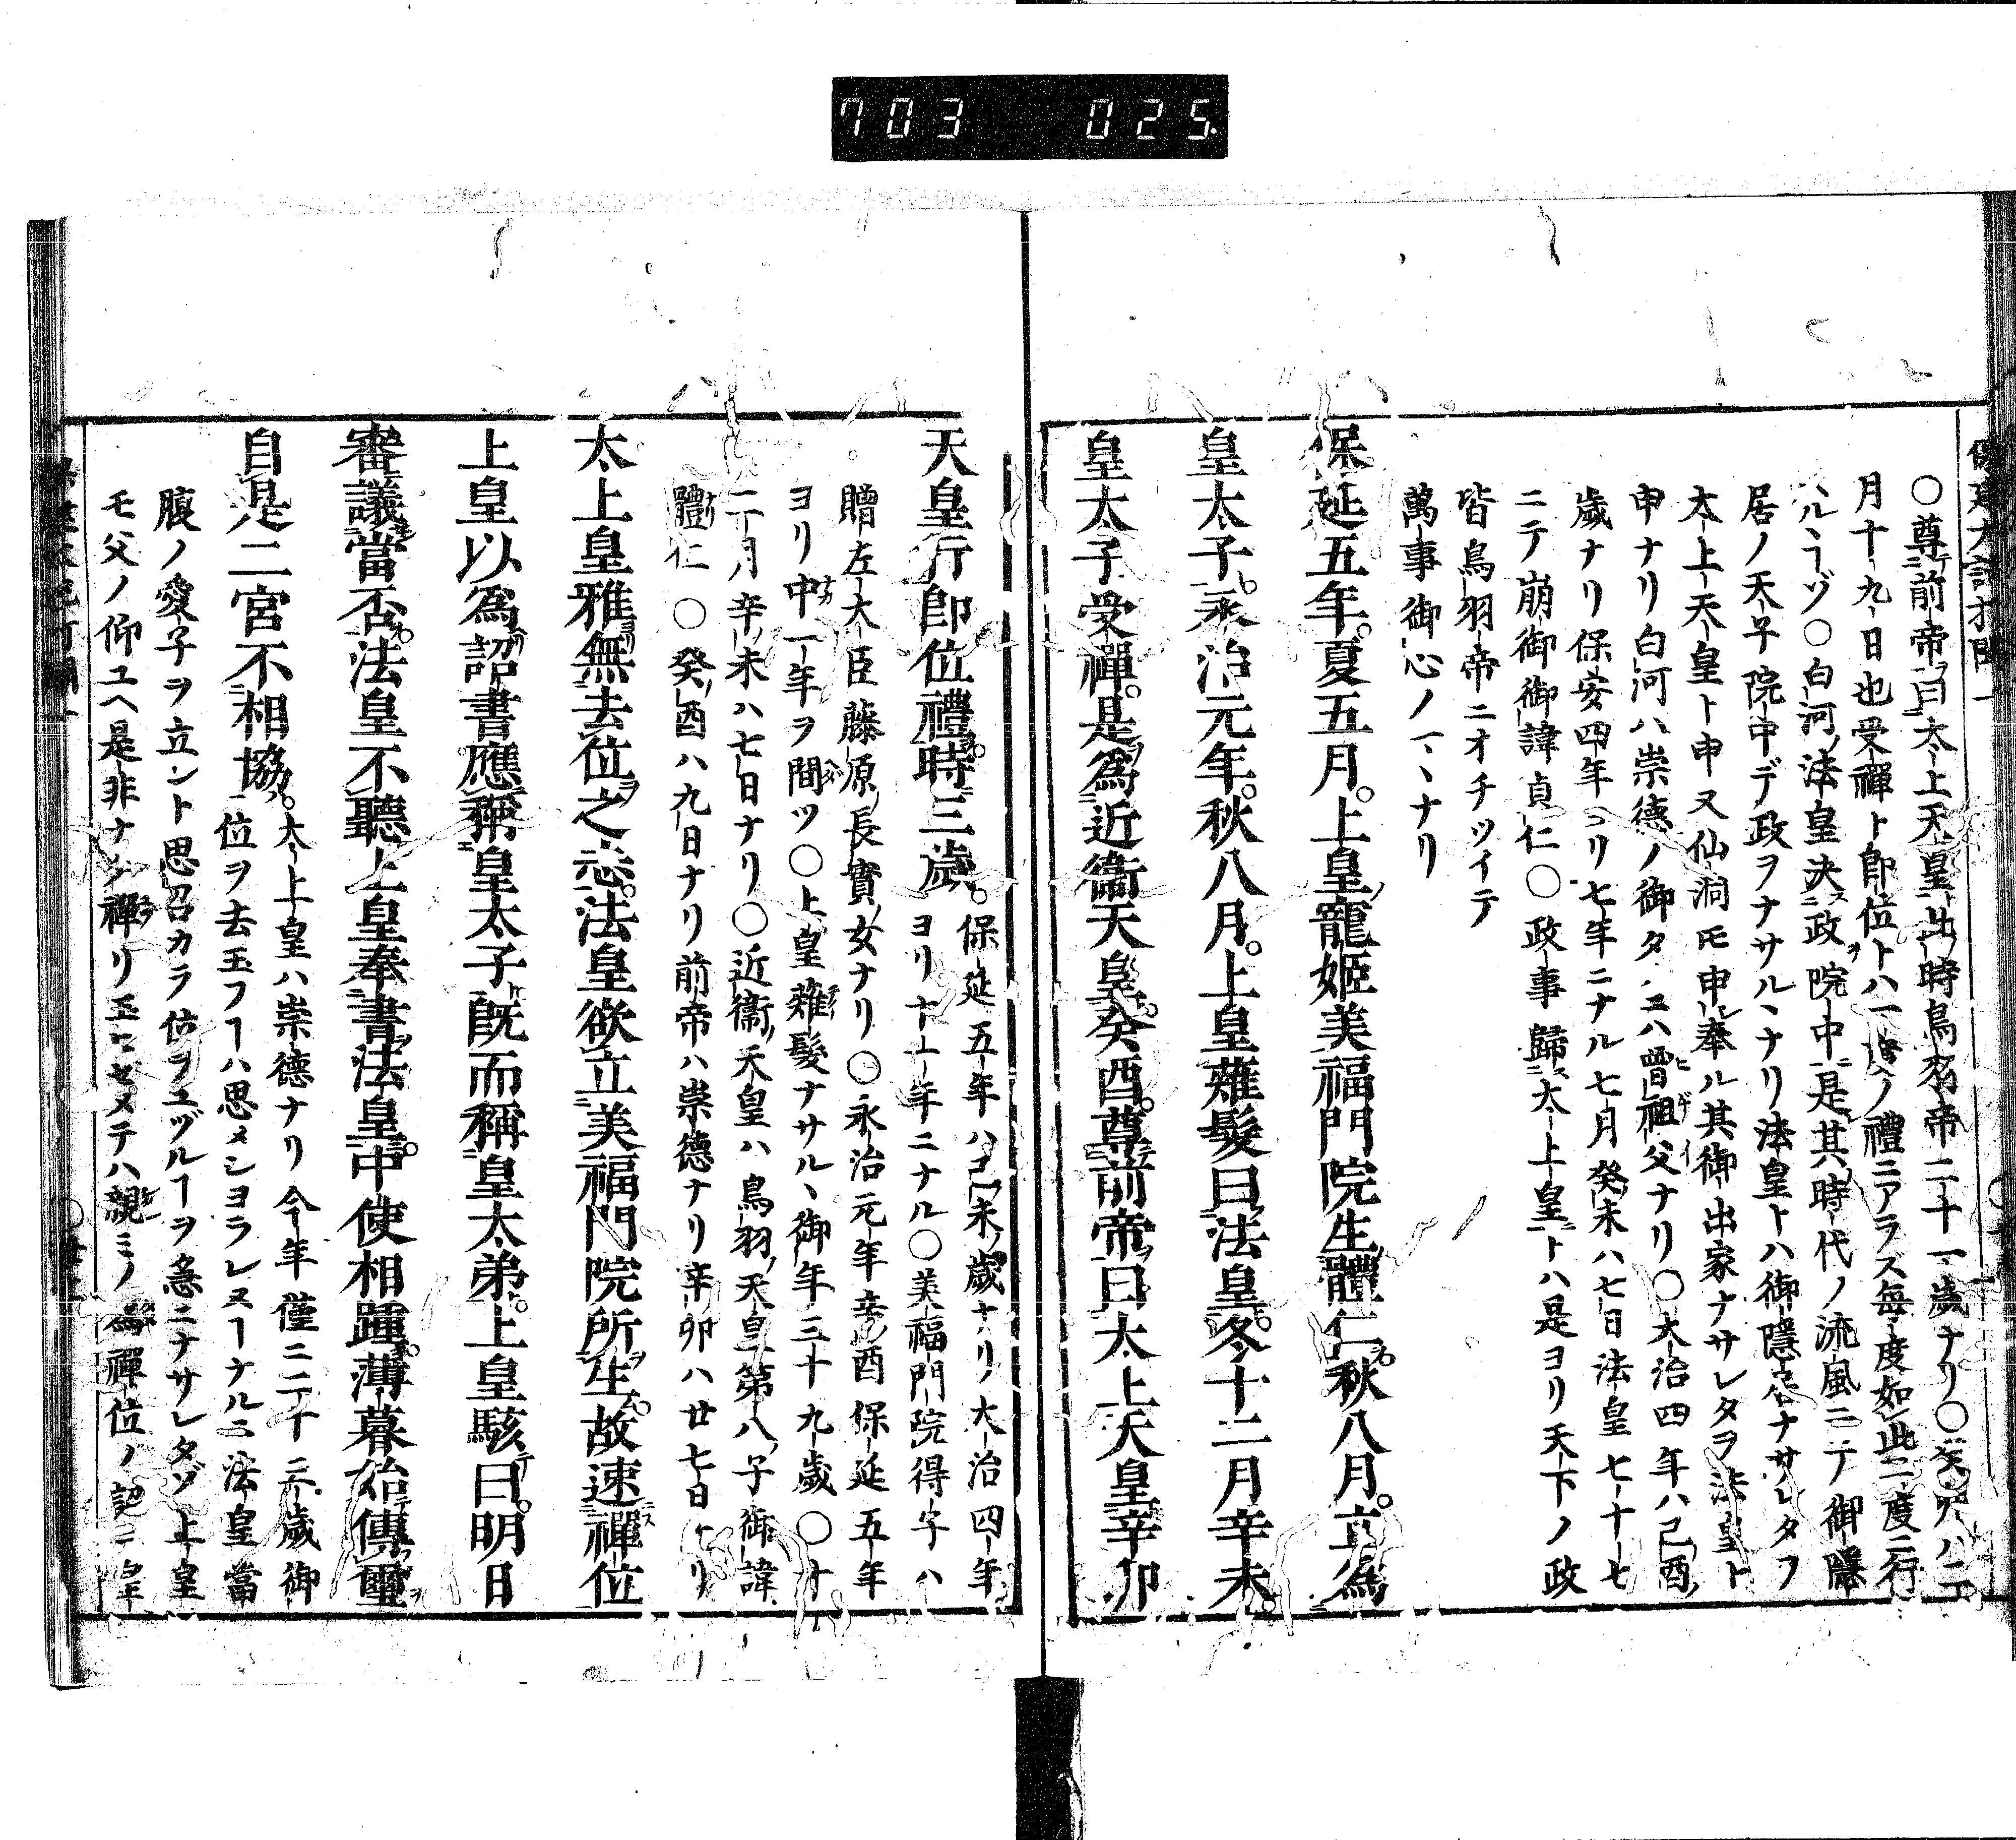 703 025
○尊前帝曰太上天皇出時鳥羽帝二十一歳ナリ○癸卯ハ二
月十九日也受禪ト即位トハ一度ノ禮ニアラズ毎度如此二度ニ行
ルヽヿゾ○白河法皇決政院中是其時代ノ流風ニテ御隱
居ノ天子院中デ政ヲナサルヽナリ法皇トハ御隱居ナサレタフ
太上天皇ト申又仙洞トモ申奉ル其御出家ナサレタヲ法皇ト
申ナリ白河ハ崇德ノ御タメニハ曾祖父ナリ○大治四年ハ己酉
歳ナリ保安四年ヨリ七年ニナル七月癸未ハ七日法皇七十七
ニテ崩御御諱貞仁○政事歸太上皇トハ是ヨリ天下ノ政
皆鳥羽帝ニオチツイテ
萬事御心ノマヽナリ
保延五年夏五月。上皇寵姬美福門院生體仁。秋八月。立爲
皇太子。永治元年。秋八月。上皇薙髮曰法皇。冬十二月辛未。
皇太子受禪。是爲近衞天皇。癸酉。尊前帝曰太上天皇。辛卯
天皇行卽位禮。時三歳。保延五年ハ己未歳ナリ大治四年
ヨリ十一年ニナル○美福門院得子ハ
贈左大臣藤原長實女ナリ○永治元年辛酉保延五年
ヨリ中一年ヲ間ツ○上皇薙髮ナサルヽ御年三十九歳○十
二月辛未ハ七日ナリ○近衞天皇ハ鳥羽天皇第八子御諱
體仁○癸酉ハ九日ナリ前帝ハ崇德ナリ辛卯ハ廿七日ナリ
太上皇雅無去位之志。法皇欲立美福門院所生。故速禪位
上皇以爲詔書應稱皇太子旣而稱皇太弟。上皇駭曰。明日
審議當否。法皇不聽上皇奉書法皇。中使相踵。薄暮始傳璽
自是二宮不相協。太上皇ハ崇德ナリ今年僅ニ二十三歳御
位ヲ去玉フヿハ思メシヨラレヌヿナルニ法皇當
腹ノ愛子ヲ立ント思召カラ位ヲユヅルヿヲ急ニナサレタゾ上皇
モ父ノ仰ユヘ是非ナク禪リ玉ヒセメテハ親ミノ爲禪位ノ詔ニ皇